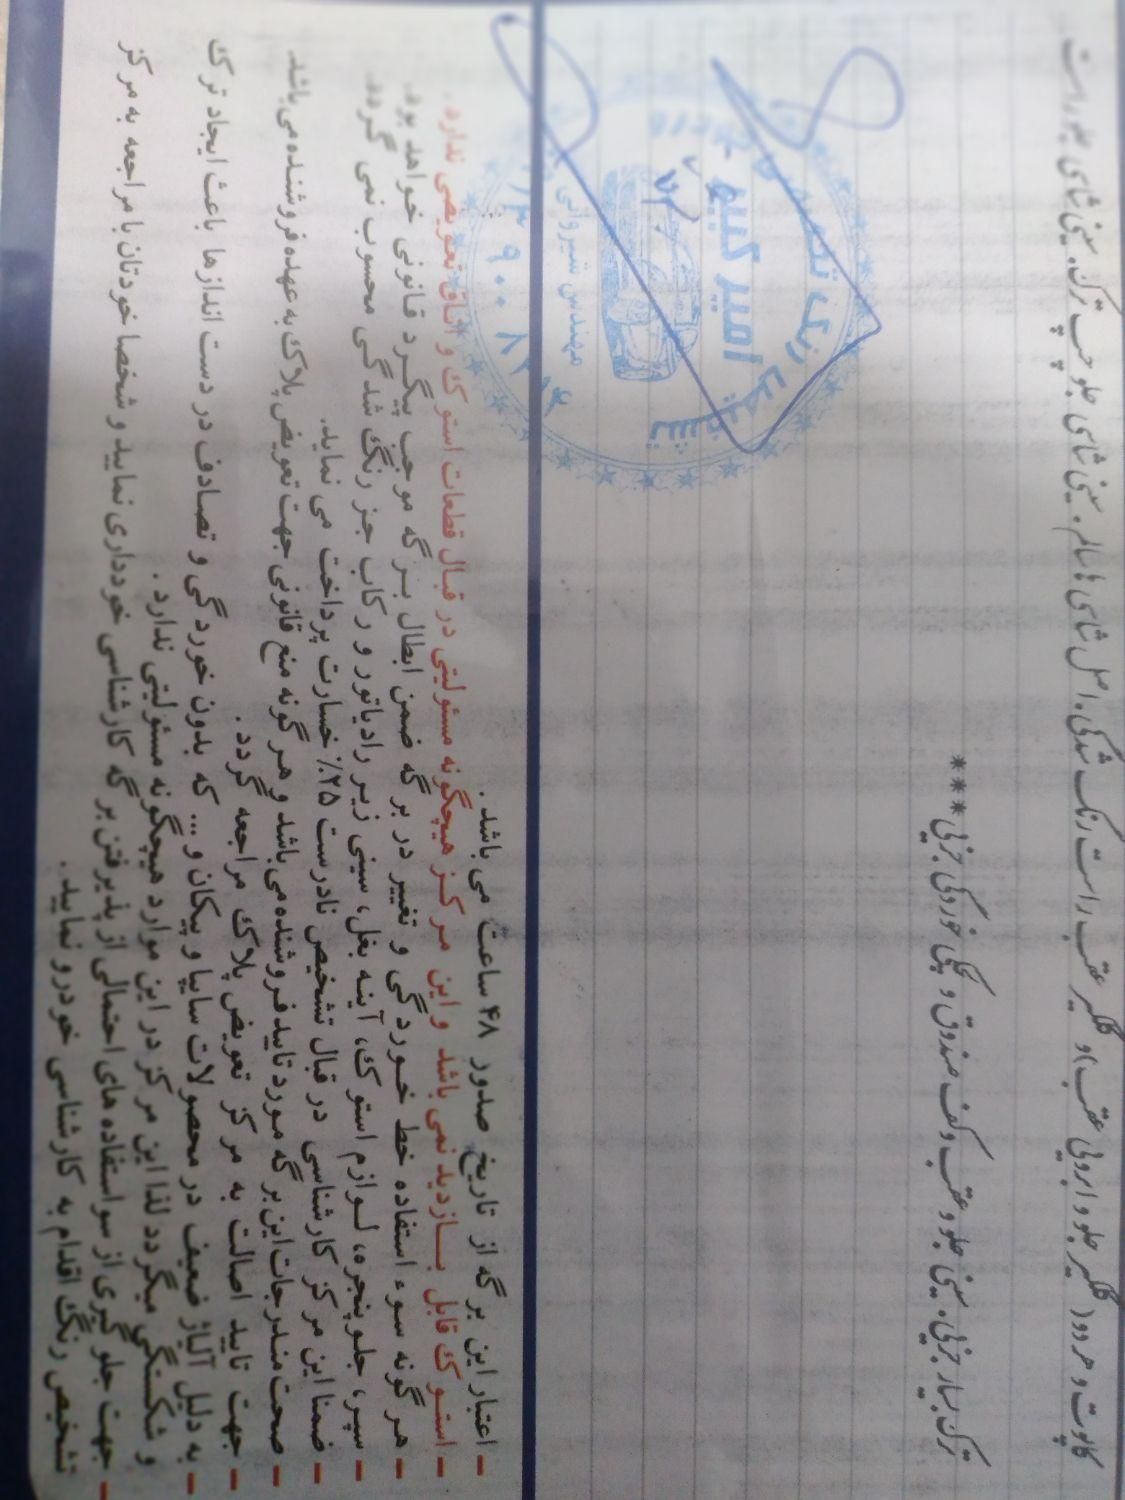 کاپوت و هر دو( گلگیر جلو و ابرویی عقب)و گلگیر عقب راست رنگ شدگی. اصل شاسی ها سالم. سینی شاسی جلو چپ ترک. سینی شاسی جلو راست
ترک بسیار جزیی. سینی جلو و عقب و کف صندوق و پکی خوردگی جزیی***
تشخیص رنگ تصادف خودرو
امیر کبیر
مهندس شیروانی
- اعتبار این برگه از تاریخ صدور ۴۸ ساعت می باشد.
- استوک قابل بازدید نمی باشد و این مرکز هیچگونه مسئولیتی در قبال قطعات استوک و اتاق تعویضی ندارد.
- هرگونه سوء استفاده خط خوردگی و تغییر در برگه ضمن ابطال برگه موجب پیگرد قانونی خواهد بود.
- سپر، جلو پنجره، لوازم استوک، آینه بغل، سینی زیر رادیاتور و رکاب جز رنگ شدگی محسوب نمی گردد.
- ضمنا این مرکز کارشناسی در قبال تشخیص نادرست ۲۵٪ خسارت پرداخت می نماید.
- صحت مندرجات این برگه مورد تایید فروشنده می باشد و هر گونه منع قانونی جهت تعویض پلاک به عهده فروشنده می باشد
- جهت تایید اصالت به مرکز تعویض پلاک مراجعه گردد.
- به دلیل آلیاژ ضعیف در محصولات سایپا و پیکان و ... که بدون خوردگی و تصادف در دست اندازها باعث ایجاد ترک
و شکستگی میگردد لذا این مرکز در این موارد هیچگونه مسئولیتی ندارد.
- جهت جلوگیری از سو استفاده های احتمالی از پذیرفتن برگه کارشناسی خودداری نمایید و شخصا خودتان با مراجعه به مرکز
تشخیص رنگ اقدام به کارشناسی خودرو نمایید.